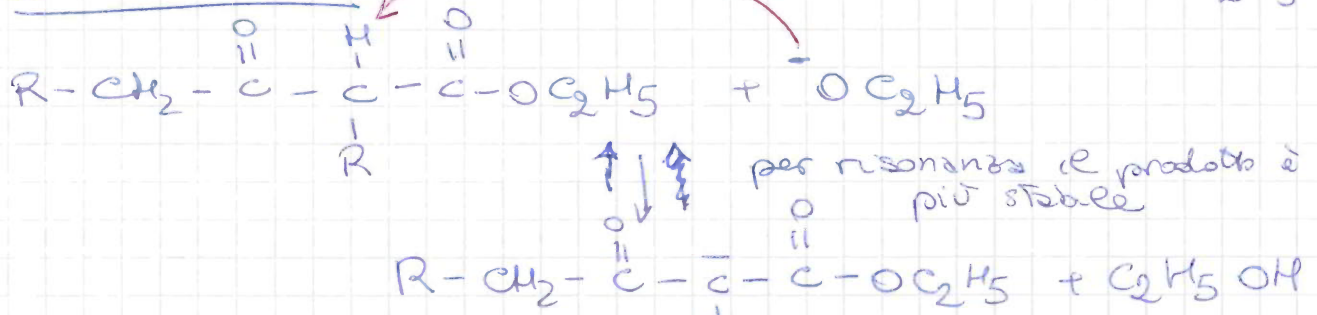 O H O
|| | ||
R - CH2 - C - C - C - OC2H5 + -OC2H5
|
R
per risonanza il prodotto è
più stabile
O O
|| ||
R - CH2 - C - C̄ - C - OC2H5 + C2H5OH